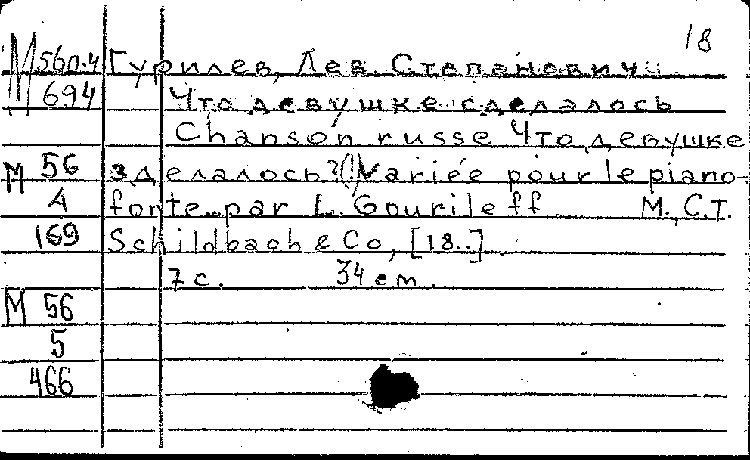 18
М 56п.4 Гурилев, Лев Степанович.
694 Что девушке сделалось
Chanson russe Что девушке
М 56 зделалось?(!) Variée pour le piano-
А forte par L. Gourileff М., С.Т.
169 Schildbach & Co, [18..]
7 с. 34 см.
М 56
5
466